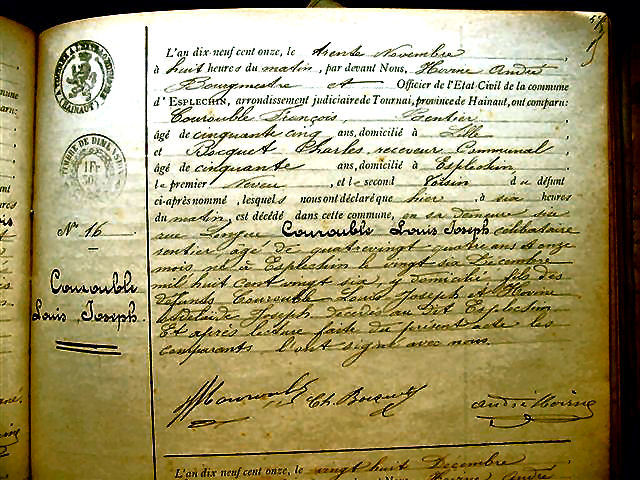 L'an dix-neuf cent onze, le trente Novembre
à huit heures du matin, par devant Nous, Hovine André
Bourgmestre Officier de l'Etat Civil de la commune
d'ESPLECHIN, arrondissement judiciaire de Tournai, province de Hainaut, ont comparu:
Courouble François, Rentier
âgé de cinquante cinq ans, domicilié à Lille
et Bocquet Charles, receveur Communal
âgé de cinquante ans, domicilié à Esplechin
le premier neveu, et le second voisin du défunt
ci-après nommé, lesquels nous ont déclaré que hier, à six heures
du matin, est décédé dans cette commune, en sa demeure sise
rue Courouble Louis Joseph célibataire
rentier âgé de quatre vingt quatre ans et onze
mois né à Esplechin le vingt six Décembre
mil huit cent vingt six, y domicilié fils des
défunts Courouble Louis Joseph et Hovine
Adélaïde Joseph décédés au dit Esplechin
Et après lecture faite du présent acte les
comparants l'ont signé avec nous.
Ch. Bocquet
André Hovine
Nº 16
Courouble
Louis Joseph.
L'an dix neuf cent onze, le vingt huit Décembre